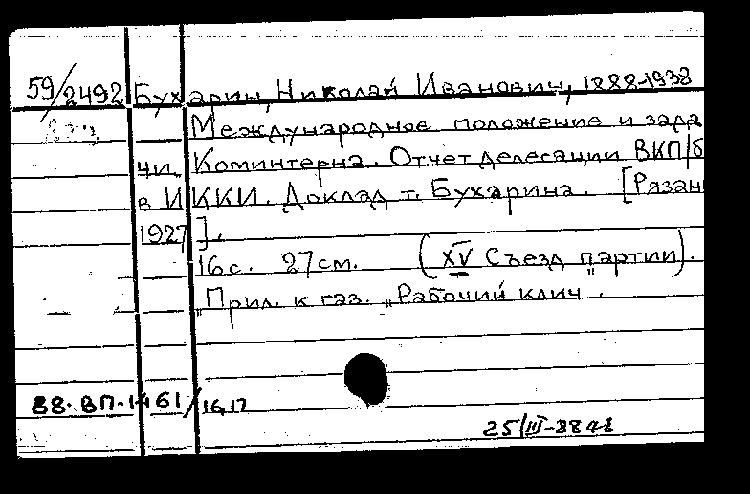 59/2492 Бухарин, Николай Иванович, 1888-1938
Международное положение и зада
чи Коминтерна. Отчет делегации ВКП/б
в ИККИ. Доклад т. Бухарина. [Рязань
1927].
16с. 27см. (XV Съезд партии).
Прил. к газ. „Рабочий клич".
88.ВП.1461/16,17
25/III-88